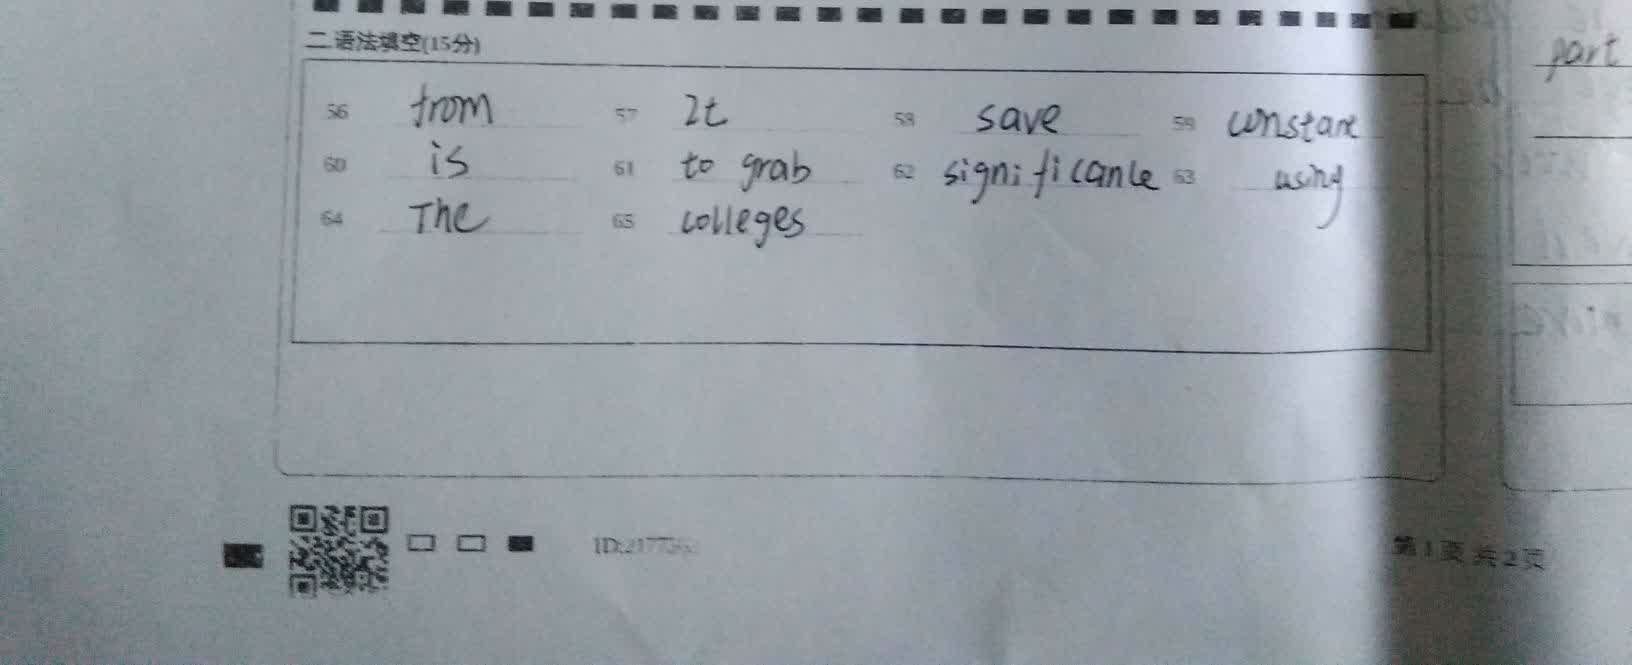 二.语法填空(15分)
56 from 57 It 58 save 59 constant
60 is 61 to grab 62 significance 63 using
64 The 65 colleges
part
第1页 共2页